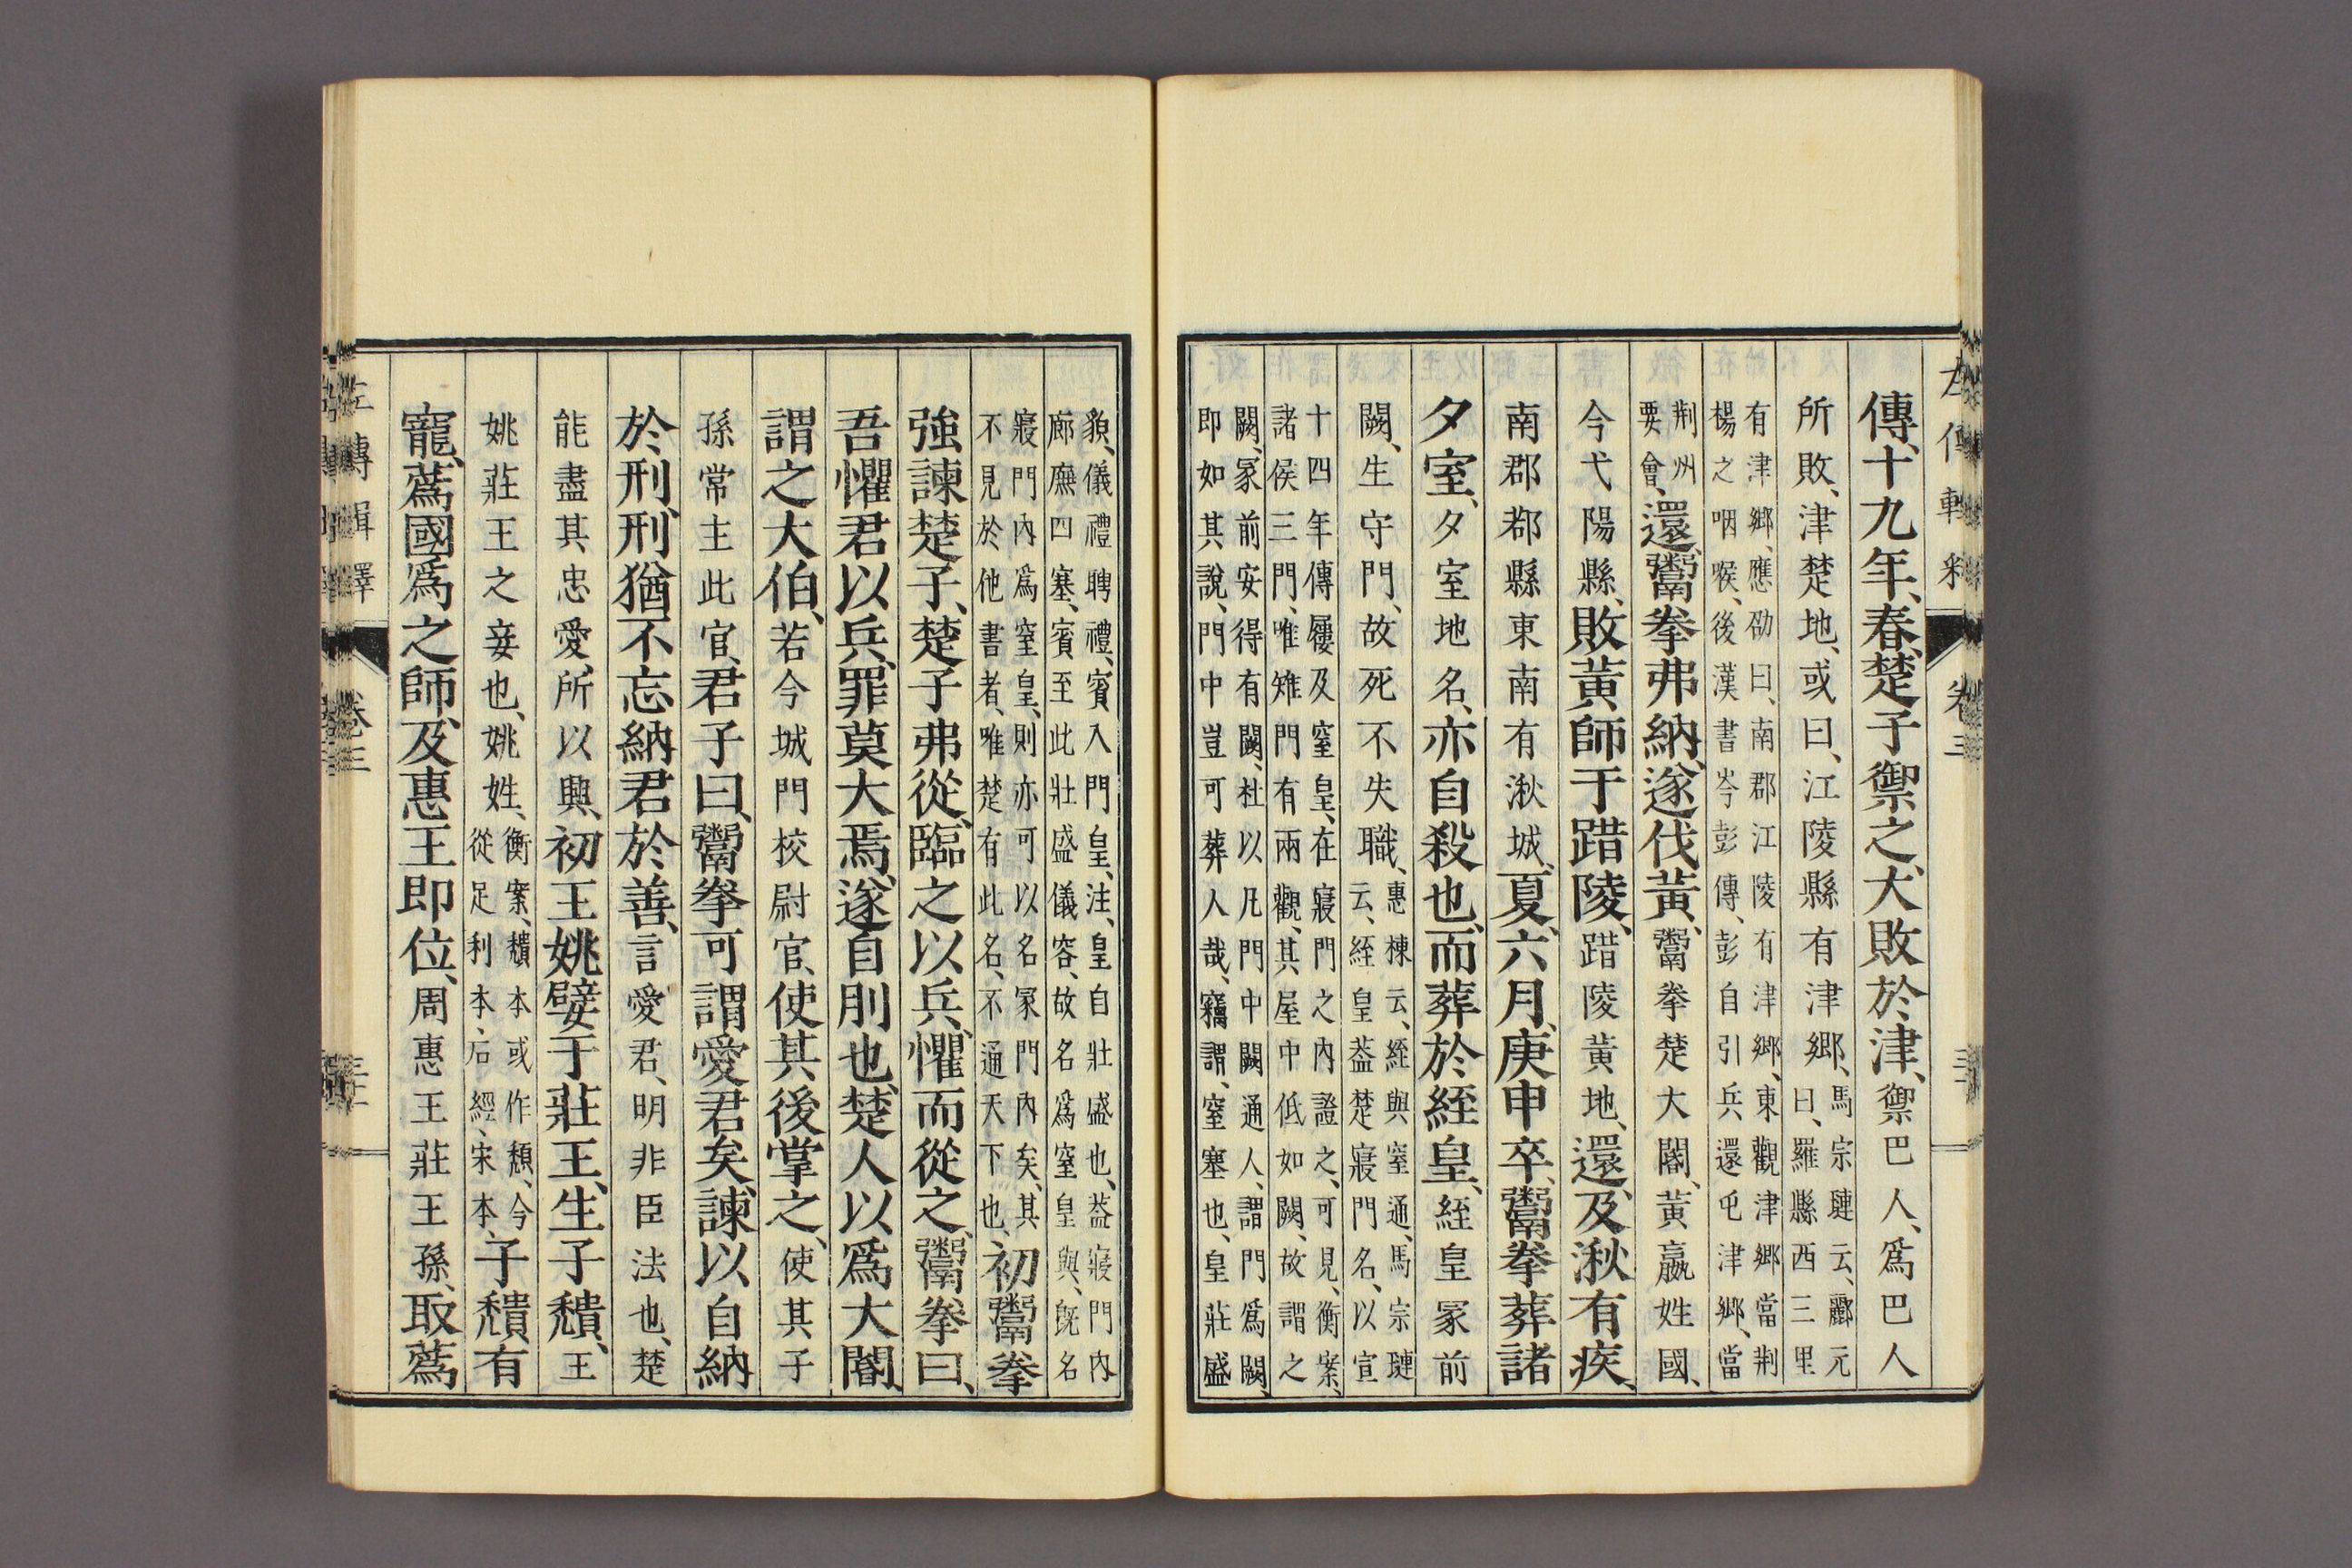 傳、十九年、春、楚子禦之、大敗於津、禦巴人、爲巴人
所敗、津楚地、或曰、江陵縣有津鄉、馬宗璉云、酈元
曰、羅縣西三里
有津鄉、應劭曰、南郡江陵有津鄉、東觀津鄉當荆
楊之咽喉、後漢書岑彭傳、彭自引兵還屯津鄉、當
荆州
要會、還、鬻拳弗納、遂伐黃、鬻拳楚大閽、黃嬴姓國、
今弋陽縣、敗黃師于踖陵、踖陵黃地、還、及湫有疾、
南郡鄀縣東南有湫城、夏、六月、庚申卒、鬻拳葬諸
夕室、夕室地名、亦自殺也、而葬於絰皇、絰皇冢前
闕、生守門、故死不失職、惠棟云、絰與窒通、馬宗璉
云、絰皇葢楚寢門名、以宣
十四年傳屨及窒皇、在寢門之內證之、可見、衡案、
諸侯三門、唯雉門有兩觀、其屋中低如闕、故謂之
闕、冢前安得有闕、杜以凡門中闕通人、謂門爲闕、
即如其說、門中豈可葬人哉、竊謂、窒塞也、皇莊盛
貌、儀禮聘禮、賓入門、皇、注、皇自壯盛也、葢寢門內
廊廡四塞、賓至此壯盛儀容、故名爲窒皇與、旣名
寢門內爲窒皇、則亦可以名冢門內矣、其
不見於他書者、唯楚有此名、不通天下也、初鬻拳
強諫楚子、楚子弗從、臨之以兵、懼而從之、鬻拳曰、
吾懼君以兵、罪莫大焉、遂自刖也、楚人以爲大閽、
謂之大伯、若今城門校尉官、使其後掌之、使其子
孫常主此官、君子曰、鬻拳可謂愛君矣、諫以自納
於刑、刑猶不忘納君於善、言愛君、明非臣法也、楚
能盡其忠愛、所以興、初王姚嬖于莊王、生子穨、王
姚莊王之妾也、姚姓、衡案、穨本或作頽、今
從足利本、石經、宋本、子穨有
寵、蔿國爲之師、及惠王即位、周惠王莊王孫、取蔿
卷三
左傳輯釋
卷三